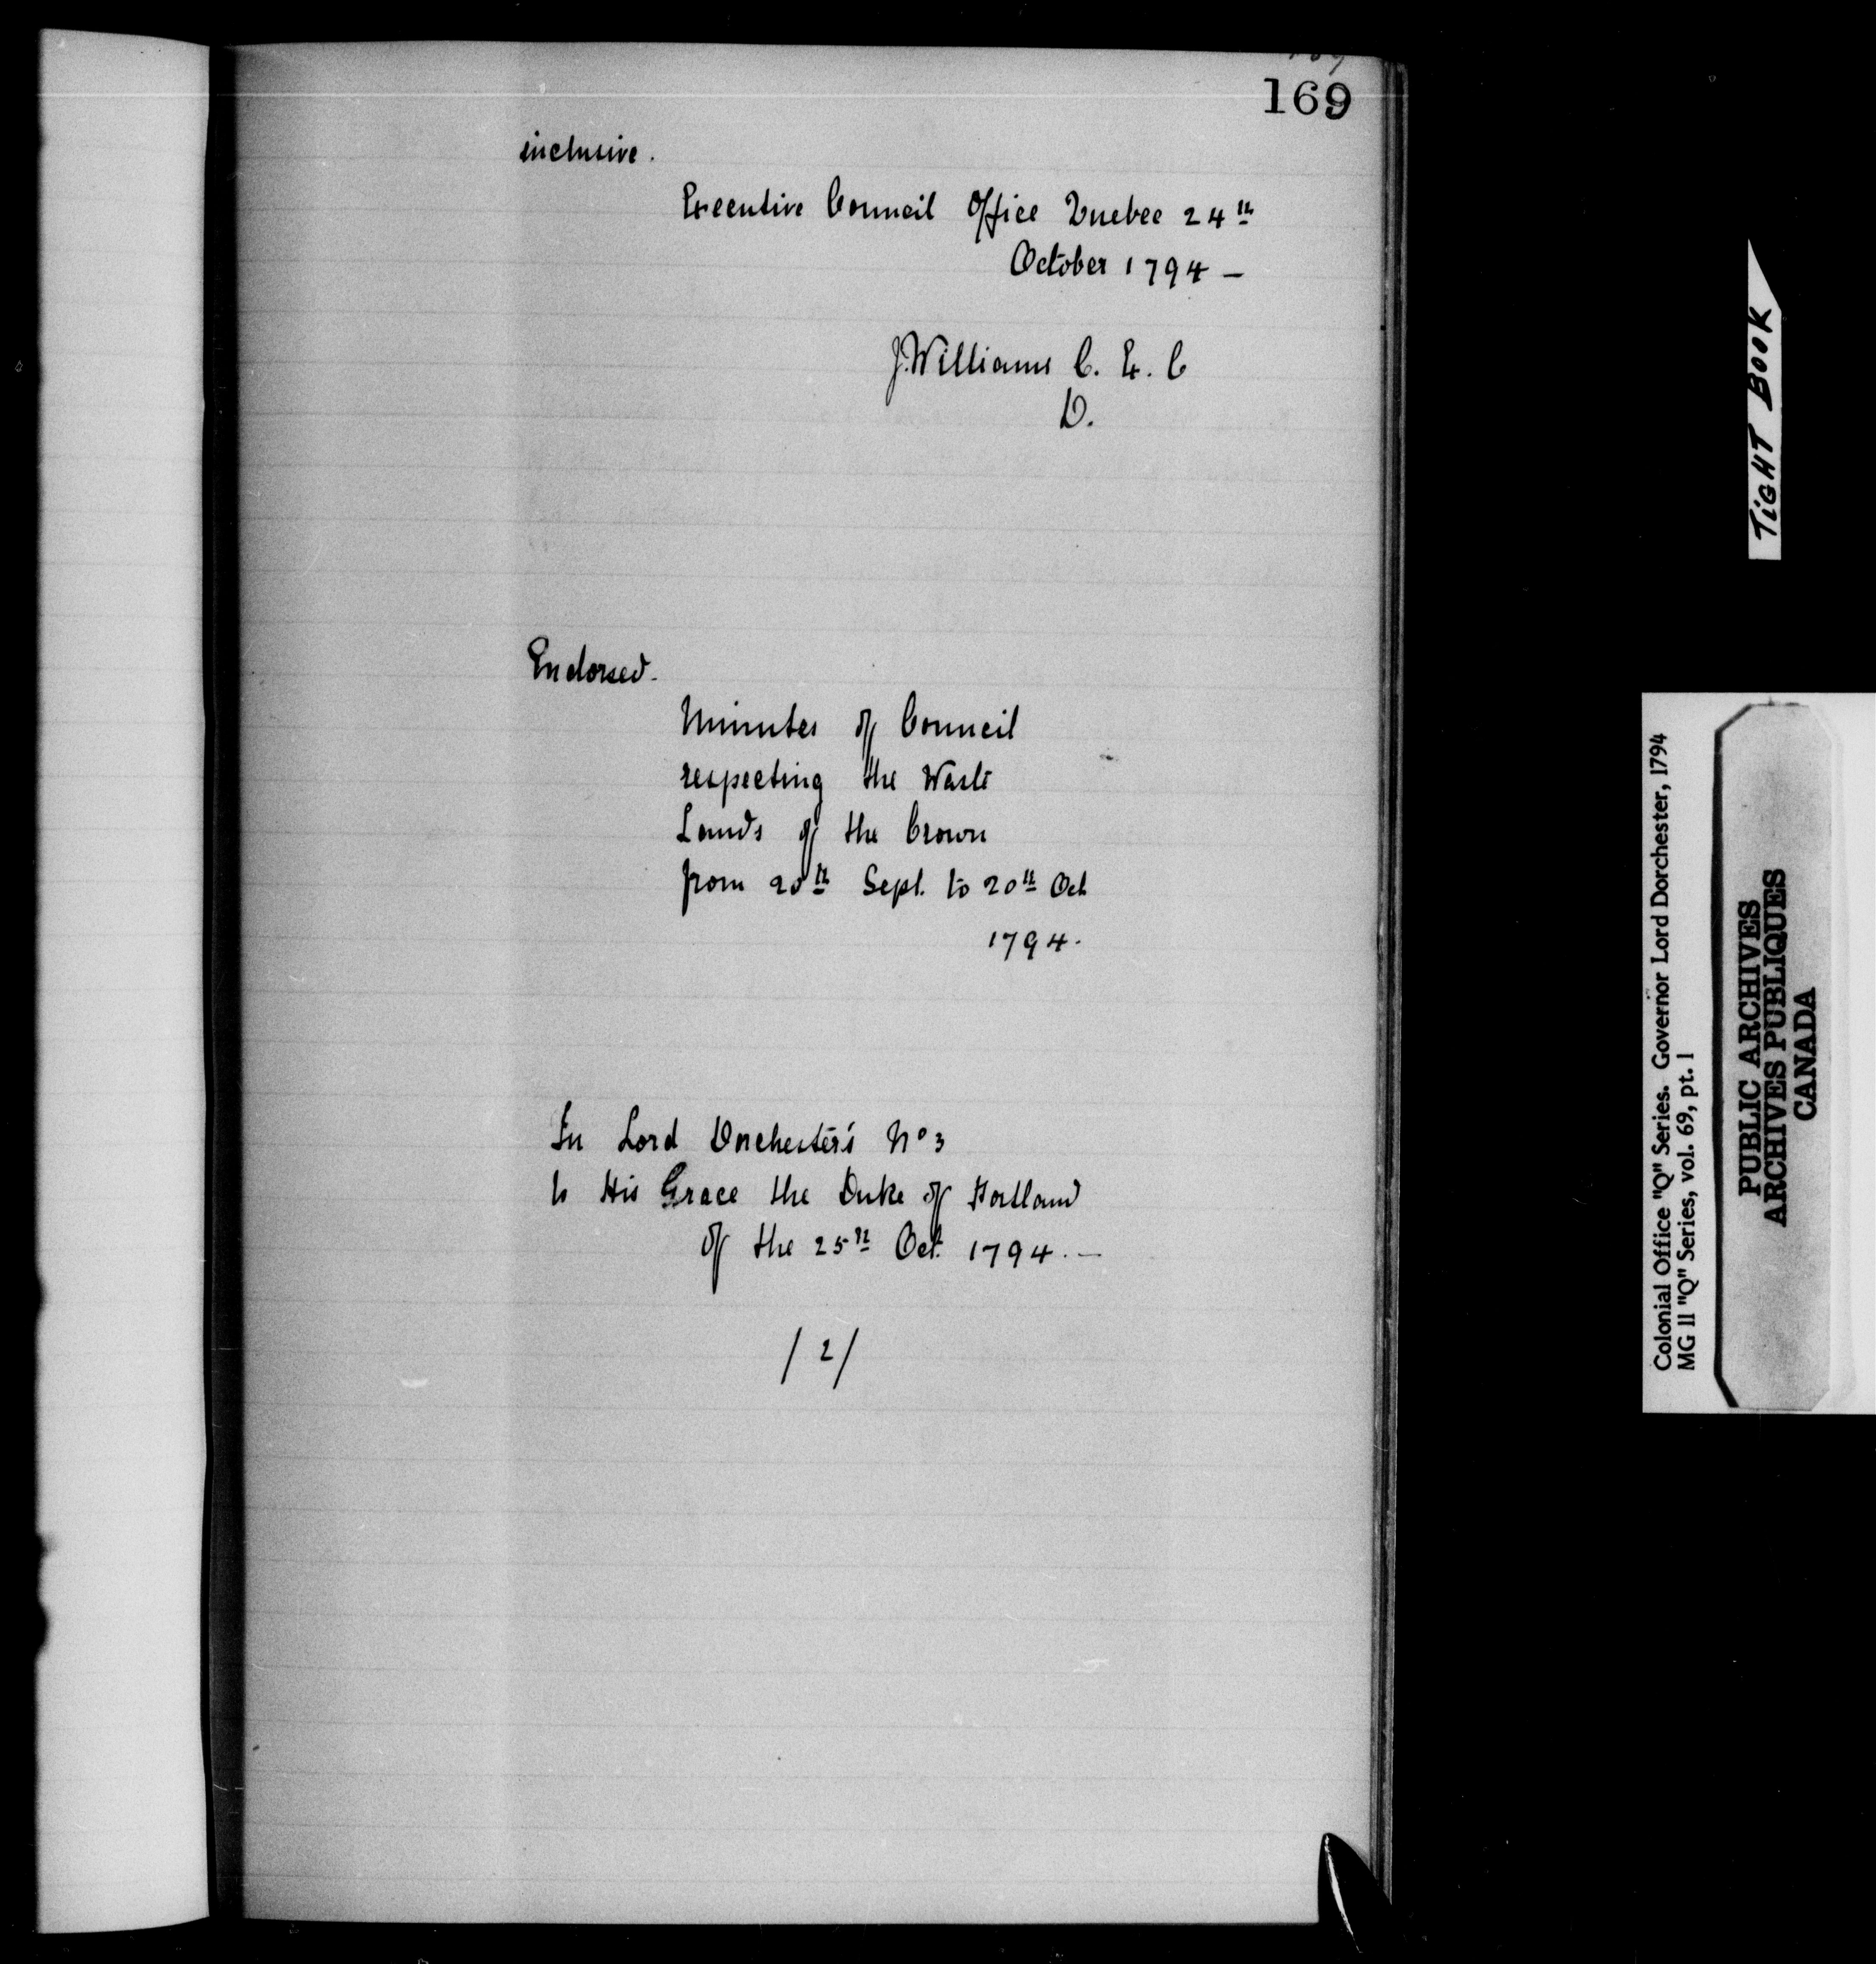 169
inclusive.
Executive Council Office Quebec 24th
October 1794 —
J. Williams C. Ex. C
D.
Endorsed.
Minutes of Council
respecting the Waste
Lands of the Crown
from 20th Sept. to 20th Oct
1794.
In Lord Dorchester's No 3
to His Grace the Duke of Portland
of the 25th Oct. 1794. —
/ 2 /
TIGHT BOOK
Colonial Office "Q" Series. Governor Lord Dorchester, 1794
MG 11 "Q" Series, vol. 69, pt. 1
PUBLIC ARCHIVES
ARCHIVES PUBLIQUES
CANADA